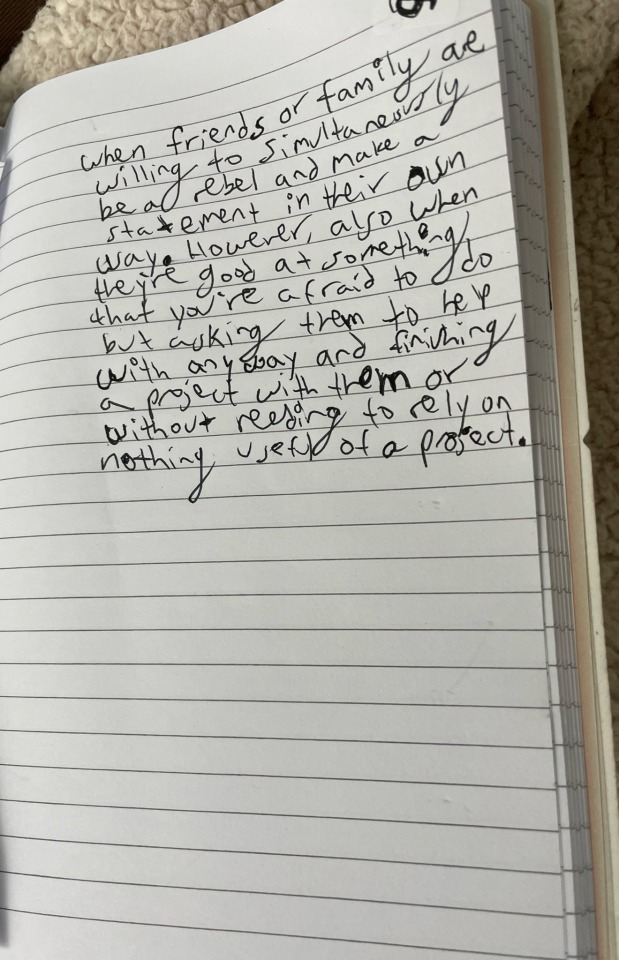 when friends or family are
willing to simultaneously
be a rebel and make a
statement in their own
way. However, also when
they're good at something
that you're afraid to do
but asking them to help
with any way and finishing
a project with them or
without needing to rely on
nothing useful of a project.